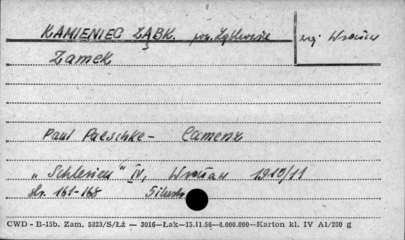 KAMIENIEC ZĄBK. pow. Ząbkowice
woj. Wrocław
Zamek
Paul Paeschke - Camenz
„Schlesien" IV, Wrocław 1910/11
str. 161-168
CWD - B-15b, Zam. 5823/S/Łź — 3016—Łak—15.11.56—4.000.000—Karton kl. IV A1/200 g